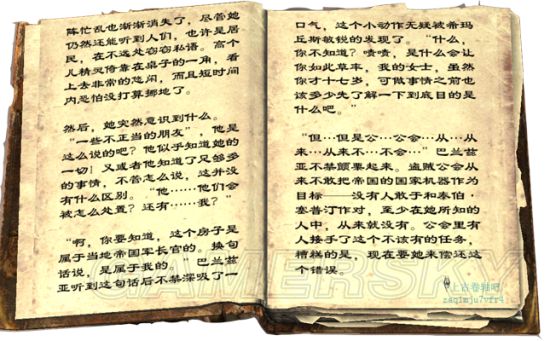 阵忙乱也渐渐消失了，尽管她
仍然还能听到人们，也许是居
民，在不远处窃窃私语。高个
儿精灵倚靠在桌子的一角，看
上去非常的悠闲，而且短时间
内恐怕没打算挪地了。
然后，她突然意识到什么。
“一些不正当的朋友”，他是
这么说的吧？他似乎知道她的
一切！又或者他知道了足够多
的事情，不管怎么说，这并没
有什么区别。“他……他们会
被怎么处置？还有……我？”
“啊，你要知道，这个房子是
属于当地帝国军长官的。换句
话说，是属于我的。” 巴兰兹
亚听到这句话后不禁深吸了一
口气，这个小动作无疑被希玛
丘斯敏锐的发现了。“什么，
你不知道？啧啧，是什么会让
你如此草率，我的女士，虽然
你才十七岁，可做事情之前也
该多少先了解一下到底目的是
什么吧。”
“但…但是公…公会…从…从
来…从来不…不会…” 巴兰兹
亚不禁颤栗起来。盗贼公会从
来不敢把帝国的国家机器作为
目标——没有人敢于和泰伯·
塞普汀作对，至少在她所知的
人中，从来就没有。公会里有
人接手了这个不该有的任务，
糟糕的是，现在要她来偿还这
个错误。
GAMERSKY
上古卷轴吧
zaq1mju7vfr4